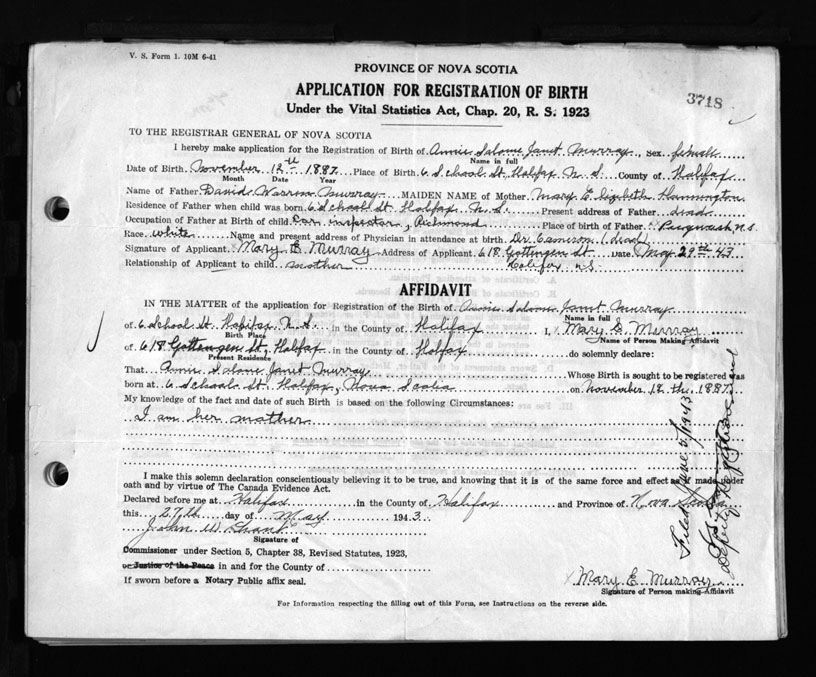 V. S. Form 1. 10M 6-41
PROVINCE OF NOVA SCOTIA
APPLICATION FOR REGISTRATION OF BIRTH
3718
Under the Vital Statistics Act, Chap. 20, R. S. 1923
TO THE REGISTRAR GENERAL OF NOVA SCOTIA
I hereby make application for the Registration of Birth of Annie Salome Janet Murray, Sex female
Name in full
Date of Birth November 12th 1887 Place of Birth 6 School St. Halifax N. S. County of Halifax
Month Date Year
Name of Father David Murray MAIDEN NAME of Mother Mary Elizabeth
Residence of Father when child was born 6 School St Halifax N. S. Present address of Father dead
Occupation of Father at Birth of child Car inspector, Richmond Place of birth of Father Pugwash N.S.
Race white Name and present address of Physician in attendance at birth Dr. (dead)
Signature of Applicant Mary E Murray Address of Applicant 618 Gottingen St. Date May 29th 43
Relationship of Applicant to child mother Halifax N.S.
AFFIDAVIT
IN THE MATTER of the application for Registration of the Birth of Annie Salome Janet Murray
Name in full
of 6 School St. Halifax N. S. in the County of Halifax I, Mary E. Murray
Birth Place Name of Person Making Affidavit
of 618 Gottingen St, Halifax in the County of Halifax do solemnly declare:
Present Residence
That Annie Salome Janet Murray Whose Birth is sought to be registered was
born at 6 School St. Halifax, Nova Scotia on November 12 th 1887
My knowledge of the fact and date of such Birth is based on the following Circumstances:
I am her mother
I make this solemn declaration conscientiously believing it to be true, and knowing that it is of the same force and effect as if made under
oath and by virtue of The Canada Evidence Act.
Declared before me at Halifax in the County of Halifax and Province of Nova Scotia
this 27th day of May 1943.
John
Signature of
Commissioner under Section 5, Chapter 38, Revised Statutes, 1923,
or Justice of the Peace in and for the County of
If sworn before a Notary Public affix seal.
Mary E. Murray
Signature of Person making Affidavit
For Information respecting the filling out of this Form, see Instructions on the reverse side.
Filed June 5/1943
Deputy Registrar